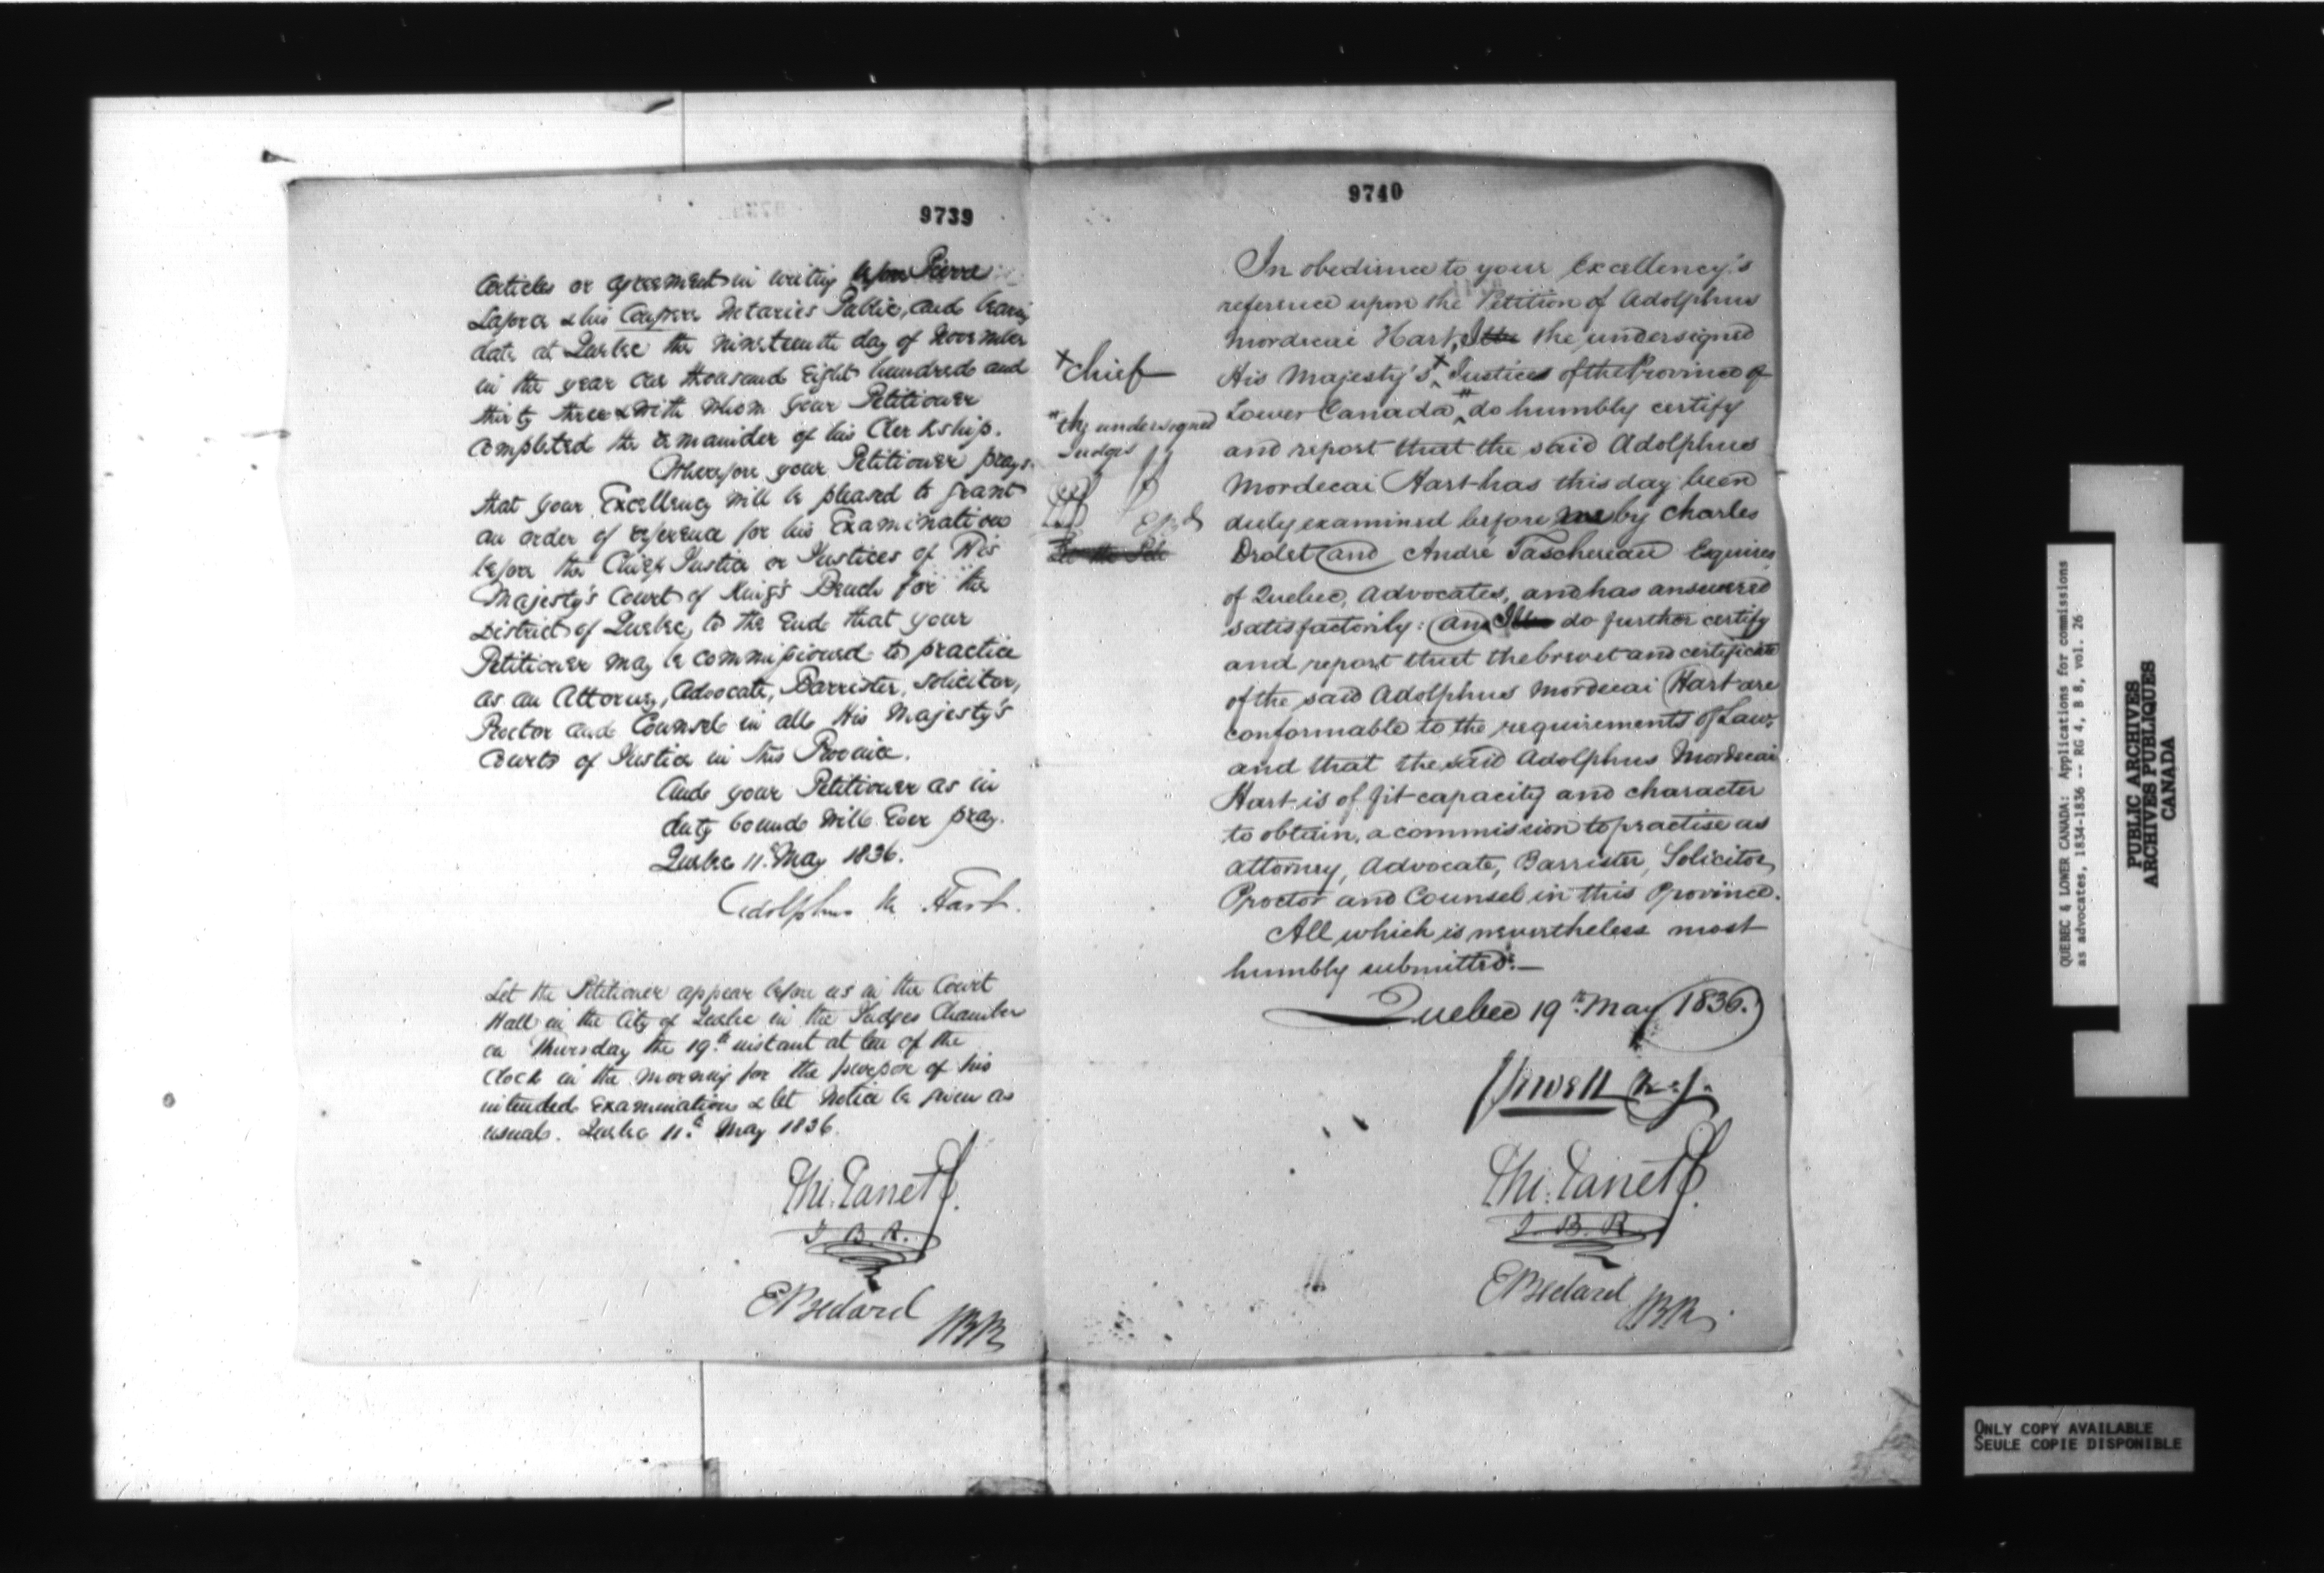 9739
Articles or agreement in writing before Pierre
Lafora & his Confrere Notaries Public, and bearing
date at Quebec the nineteenth day of November
in the year one thousand eight hundred and
thirty three & with whom your Petitioner
completed the remainder of his Clerkship.
Wherefore your Petitioner prays
that your Excellency will be pleased to grant
an order of reference for his Examination
before the Chief Justice or Justices of His
Majesty's Court of King's Bench for the
District of Quebec, to the End that your
Petitioner may be commissioned to practice
as an Attorney, Advocate, Barrister, Solicitor,
Proctor and Counsel in all His Majesty's
Courts of Justice in this Province.
And your Petitioner as in
duty bound will Ever pray.
Quebec 11. May 1836.
Adolphus M Hart.
Let the Petitioner appear before us in the Court
Hall in the City of Quebec in the Judges Chamber
on Thursday the 19th instant at ten of the
Clock in the morning for the purpose of his
intended Examination & let Notice be given as
usual. Quebec 11th May 1836.
J. B. R.
E Bedard JBR
9740
In obedience to your Excellency's
reference upon the Petition of Adolphus
Mordecai Hart, the undersigned
His Majesty's + Justices of the Province of
Lower Canada, * do humbly certify
and report that the said Adolphus
Mordecai Hart has this day been
duly examined before me by Charles
Drolet and André Taschereau Esquires
of Quebec, Advocates, and has answered
satisfactorily: and do further certify
and report that the brevet and certificate
of the said Adolphus Mordecai Hart are
conformable to the requirements of Law,
and that the said Adolphus Mordecai
Hart is of fit capacity and character
to obtain, a commission to practise as
Attorney, Advocate, Barrister, Solicitor,
Proctor and Counsel in this Province.
All which is nevertheless most
humbly submitted.—
Quebec 19th May 1836.
+ Chief
* the undersigned
Judges
J. B. R.
E Bedard JBR
QUEBEC & LOWER CANADA: Applications for commissions
as advocates, 1834-1836 -- RG 4, B 8, vol. 26
PUBLIC ARCHIVES
ARCHIVES PUBLIQUES
CANADA
ONLY COPY AVAILABLE
SEULE COPIE DISPONIBLE